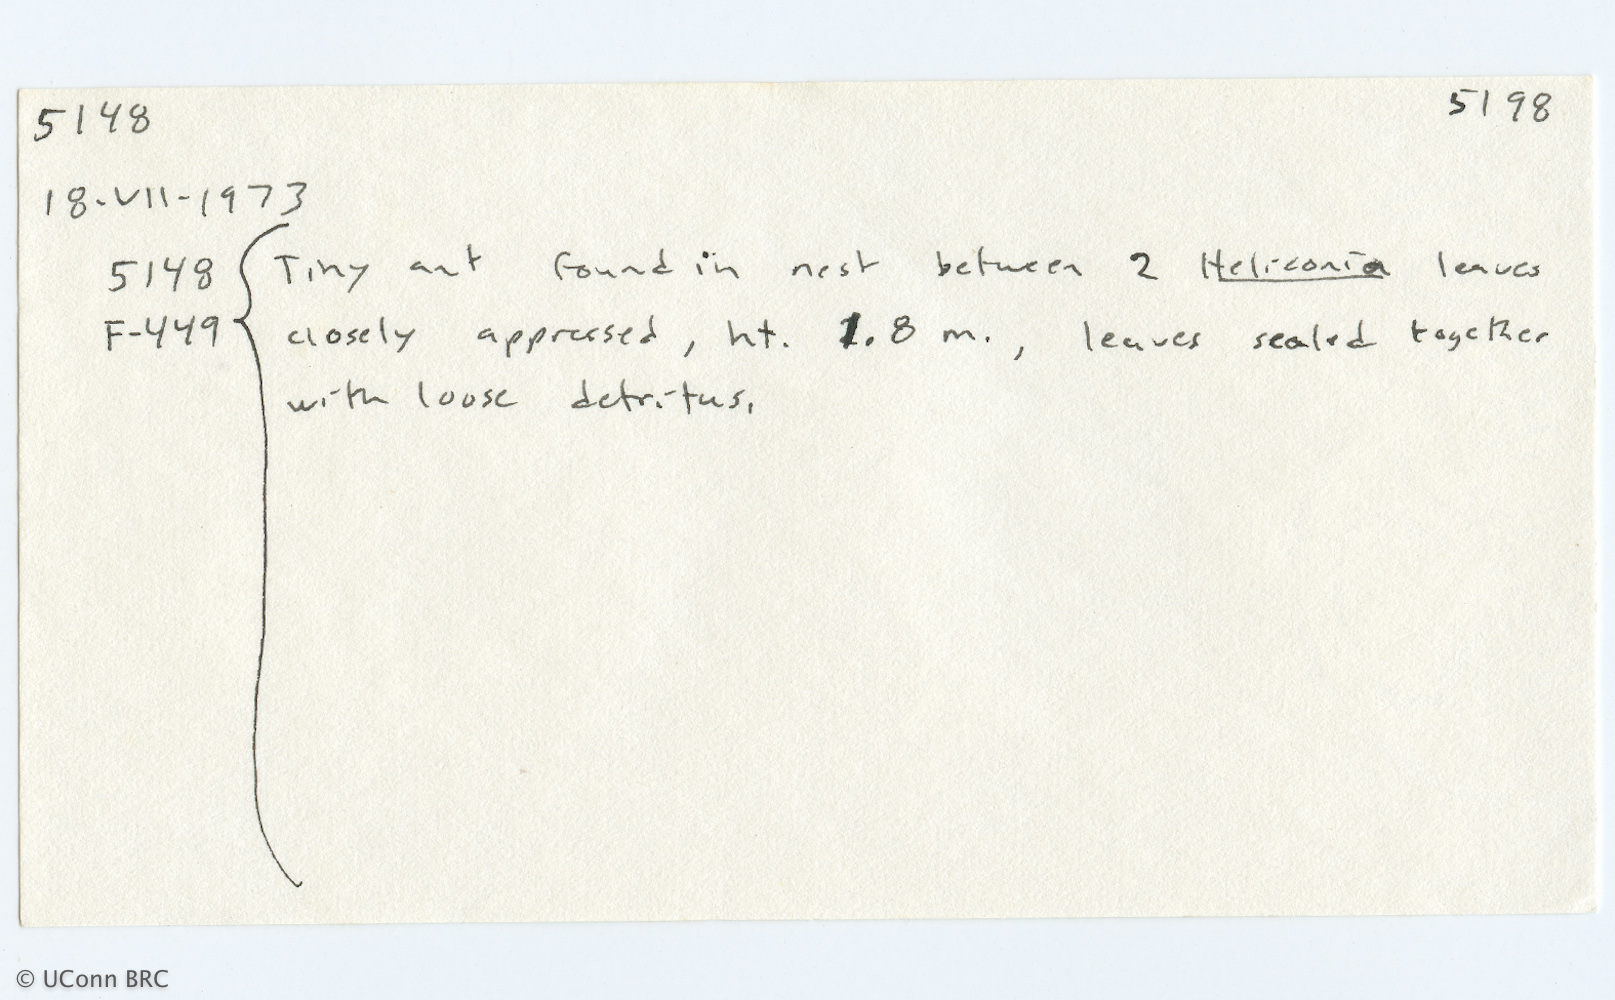 5148 5198
18-VII-1973
5148 Tiny ant found in nest between 2 Heliconia leaves
F-449 closely appressed, ht. 1.8 m., leaves sealed together
with loose detritus.
© UConn BRC